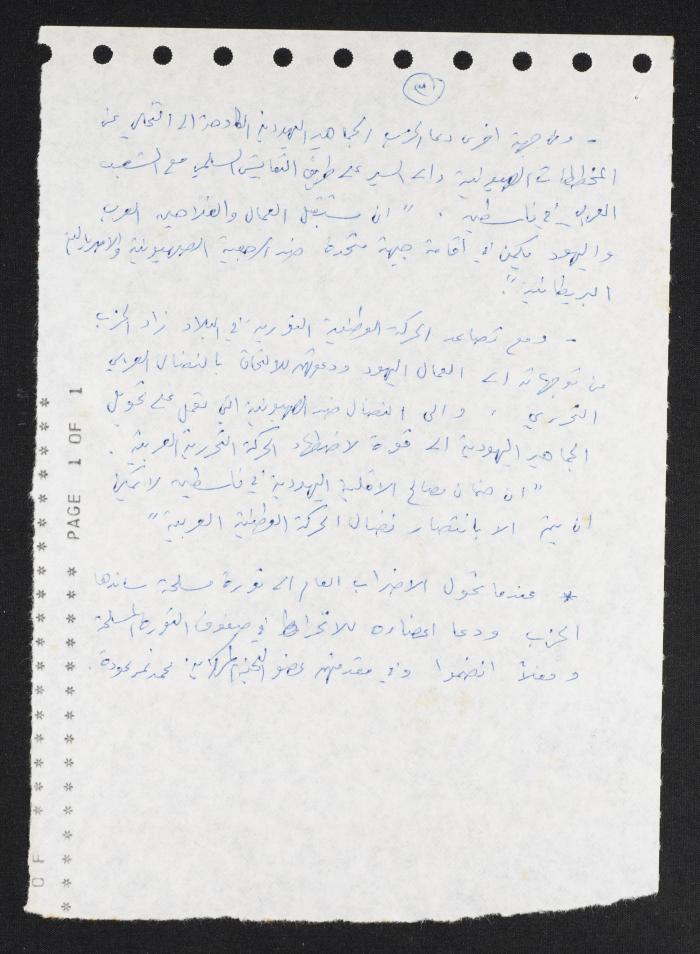 - ومن جهة اخرى دعا الحزب الجماهير اليهودية الكادحة الى التخلي عن
المخططات الصهيونية والى السير على طريق التعايش السلمي مع الشعب
العربي في فلسطين . " ان مستقبل العمال والفلاحين العرب
واليهود يكمن في اقامة جبهة متحدة ضد الرجعية الصهيونية والامبريالية
البريطانية ".
- ومع تصاعد الحركة الوطنية الثورية في البلاد زاد الحزب
من توجهاته الى العمال اليهود ودعوتهم للالتحاق بالنضال العربي
التحرري ، والى النضال ضد الصهيونية التي تعمل على تحويل
الجماهير اليهودية الى قوة لاضطهاد الحركة التحررية العربية .
" ان ضمان مصالح الاقلية اليهودية في فلسطين لا يمكن
ان يتم الا بانتصار نضال الحركة الوطنية العربية "
* عندما تحول الاضراب العام الى ثورة مسلحة ساندها
الحزب ودعا اعضاءه للانخراط في صفوف الثورة المسلحة
وفعلاً انضموا وفي مقدمتهم عضو اللجنة المركزية محمد نمر عودة.
PAGE 1 OF 1
OF